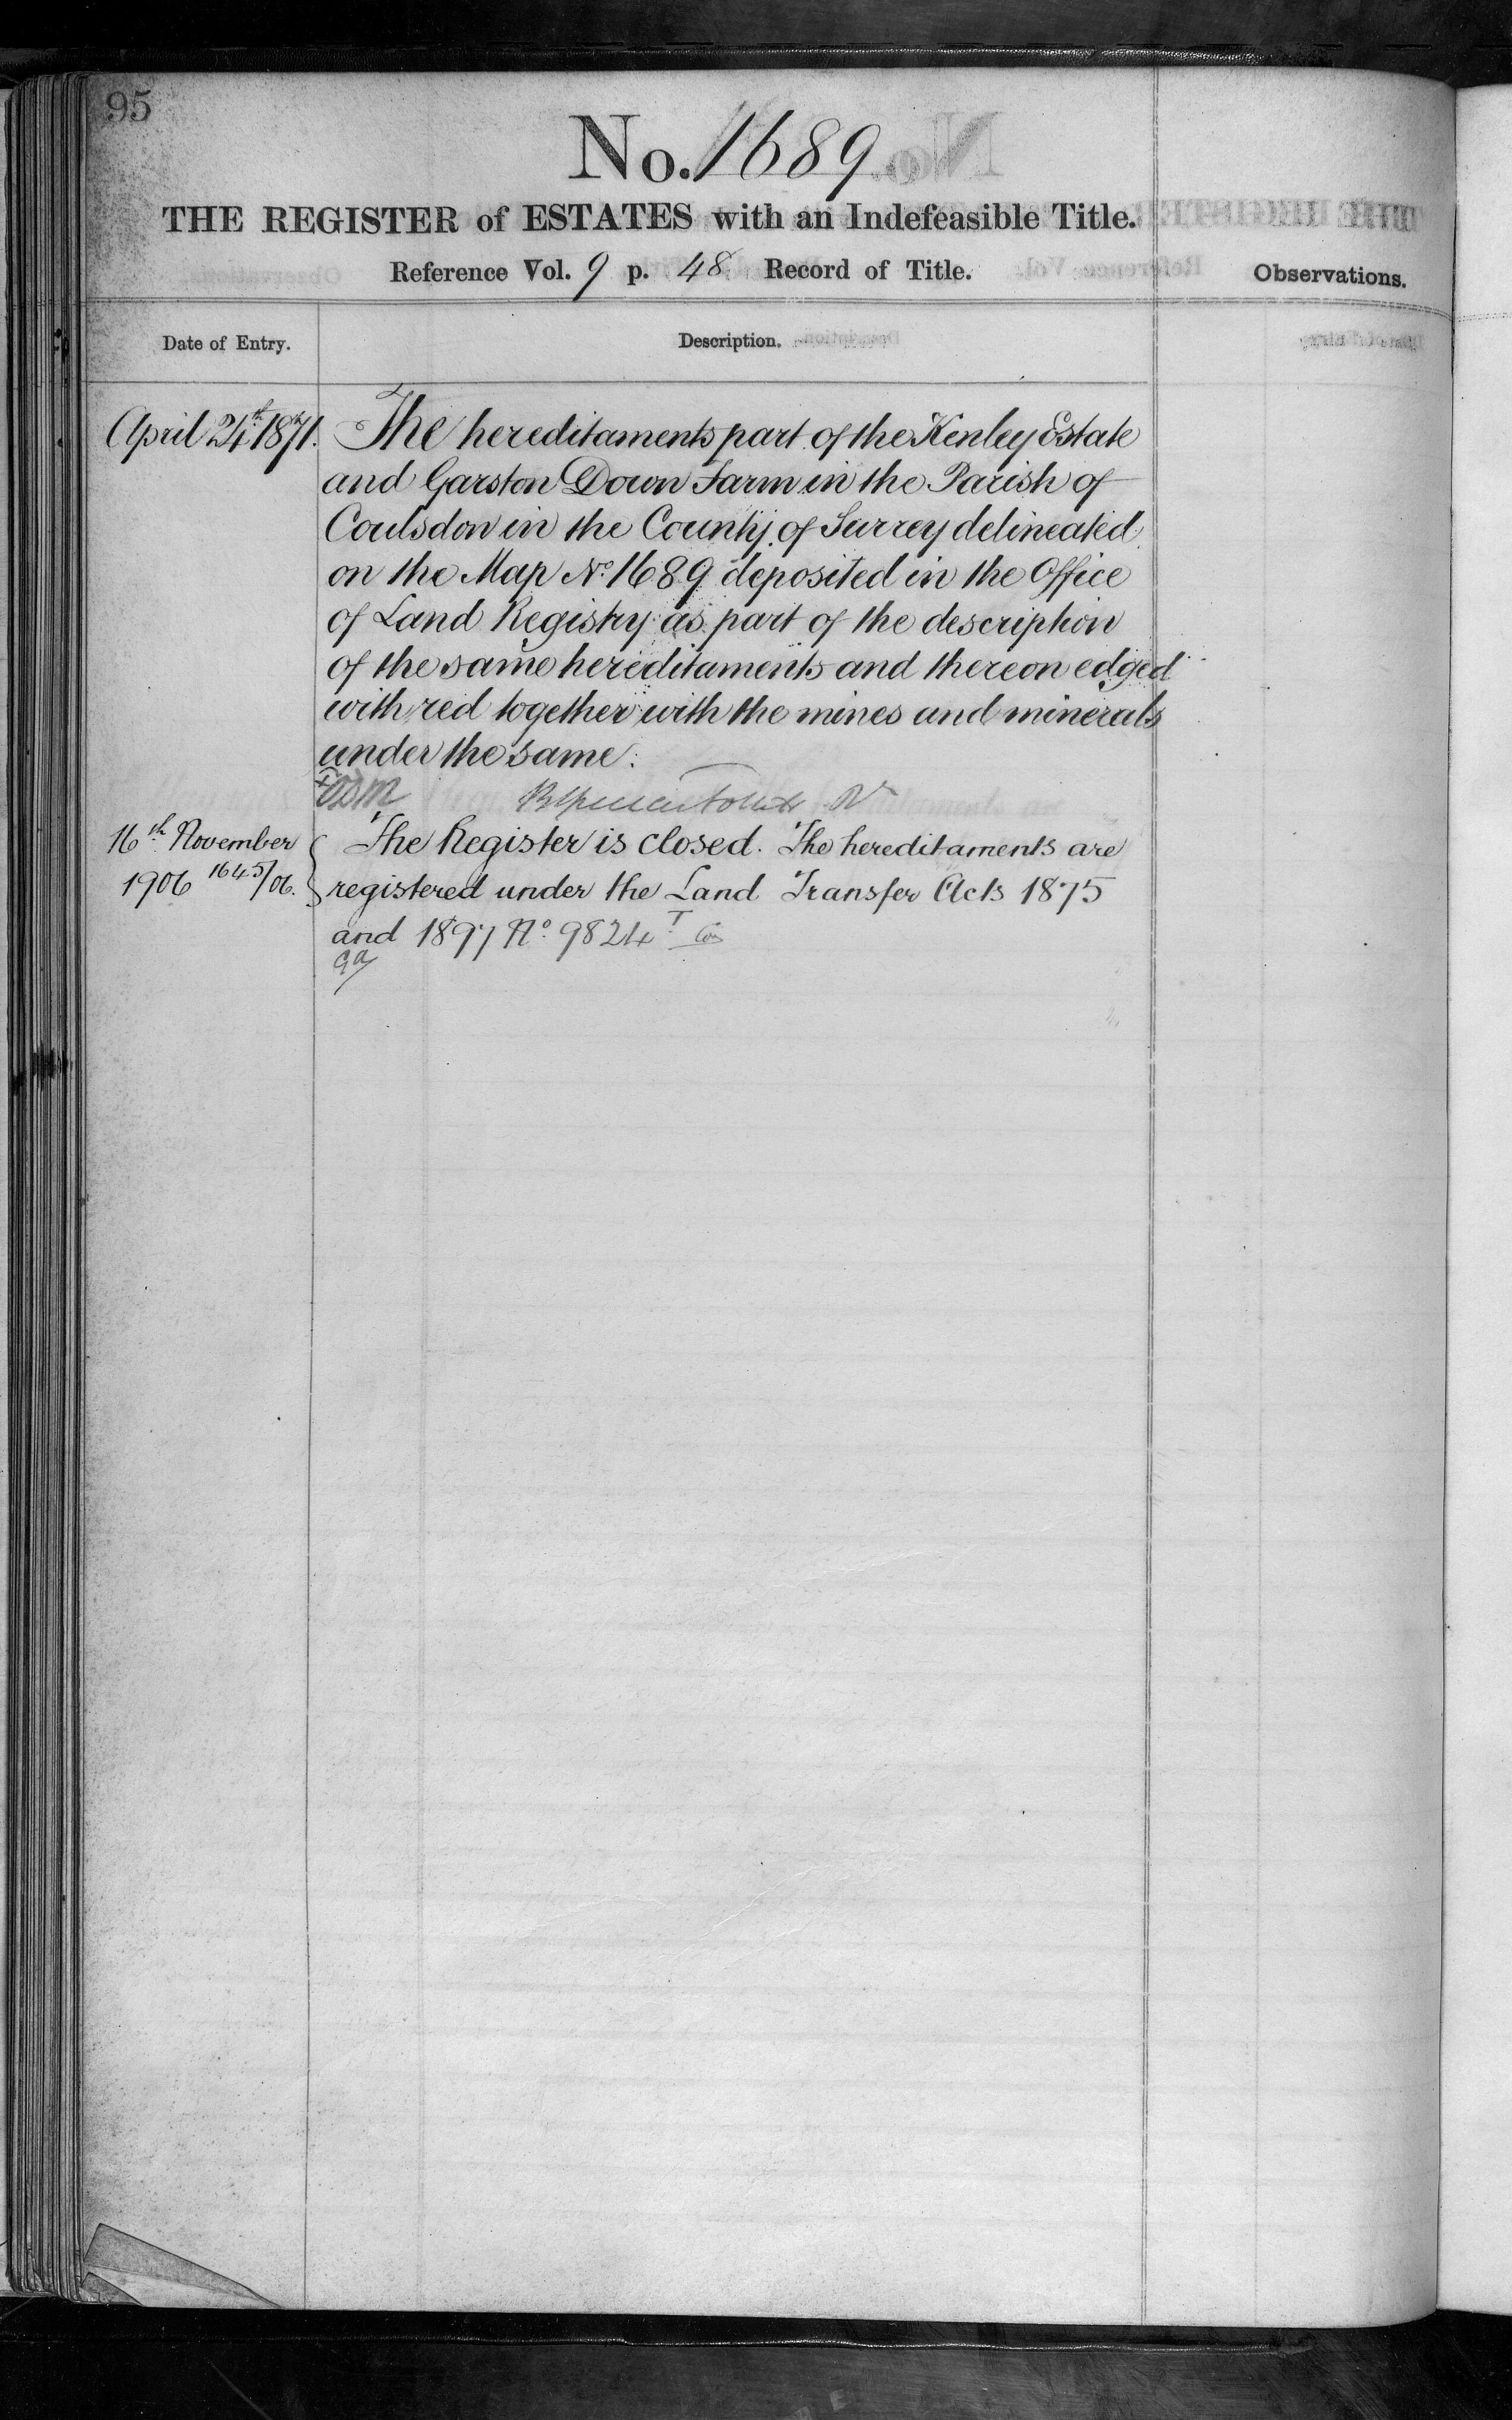 95
No. 1689
THE REGISTER of ESTATES with an Indefeasible Title.
Reference Vol. 9 p. 48 Record of Title.
Observations.
Date of Entry.
Description.
April 24th 1871.
The hereditaments part of the Kenley Estate
and Garston Down Farm in the Parish of
Coulsdon in the County of Surrey delineated
on the Map No. 1689 deposited in the Office
of Land Registry as part of the description
of the same hereditaments and thereon edged
with red together with the mines and minerals
under the same.
16th November
1906 1645/06.
The Register is closed. The hereditaments are
registered under the Land Transfer Acts 1875
and 1897 No. 9824